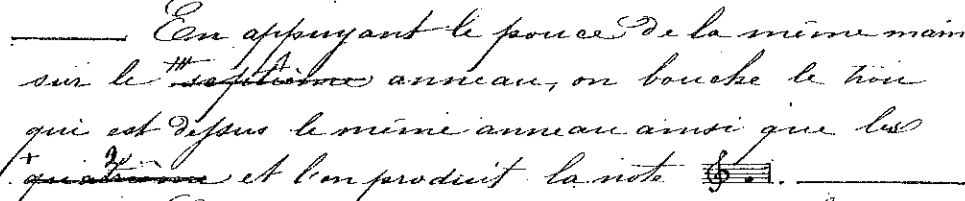 En appuyant le pouce de la même main
sur le septième anneau, on bouche le trou
qui est dessus le même anneau ainsi que les
quatrième et l'on produit la note